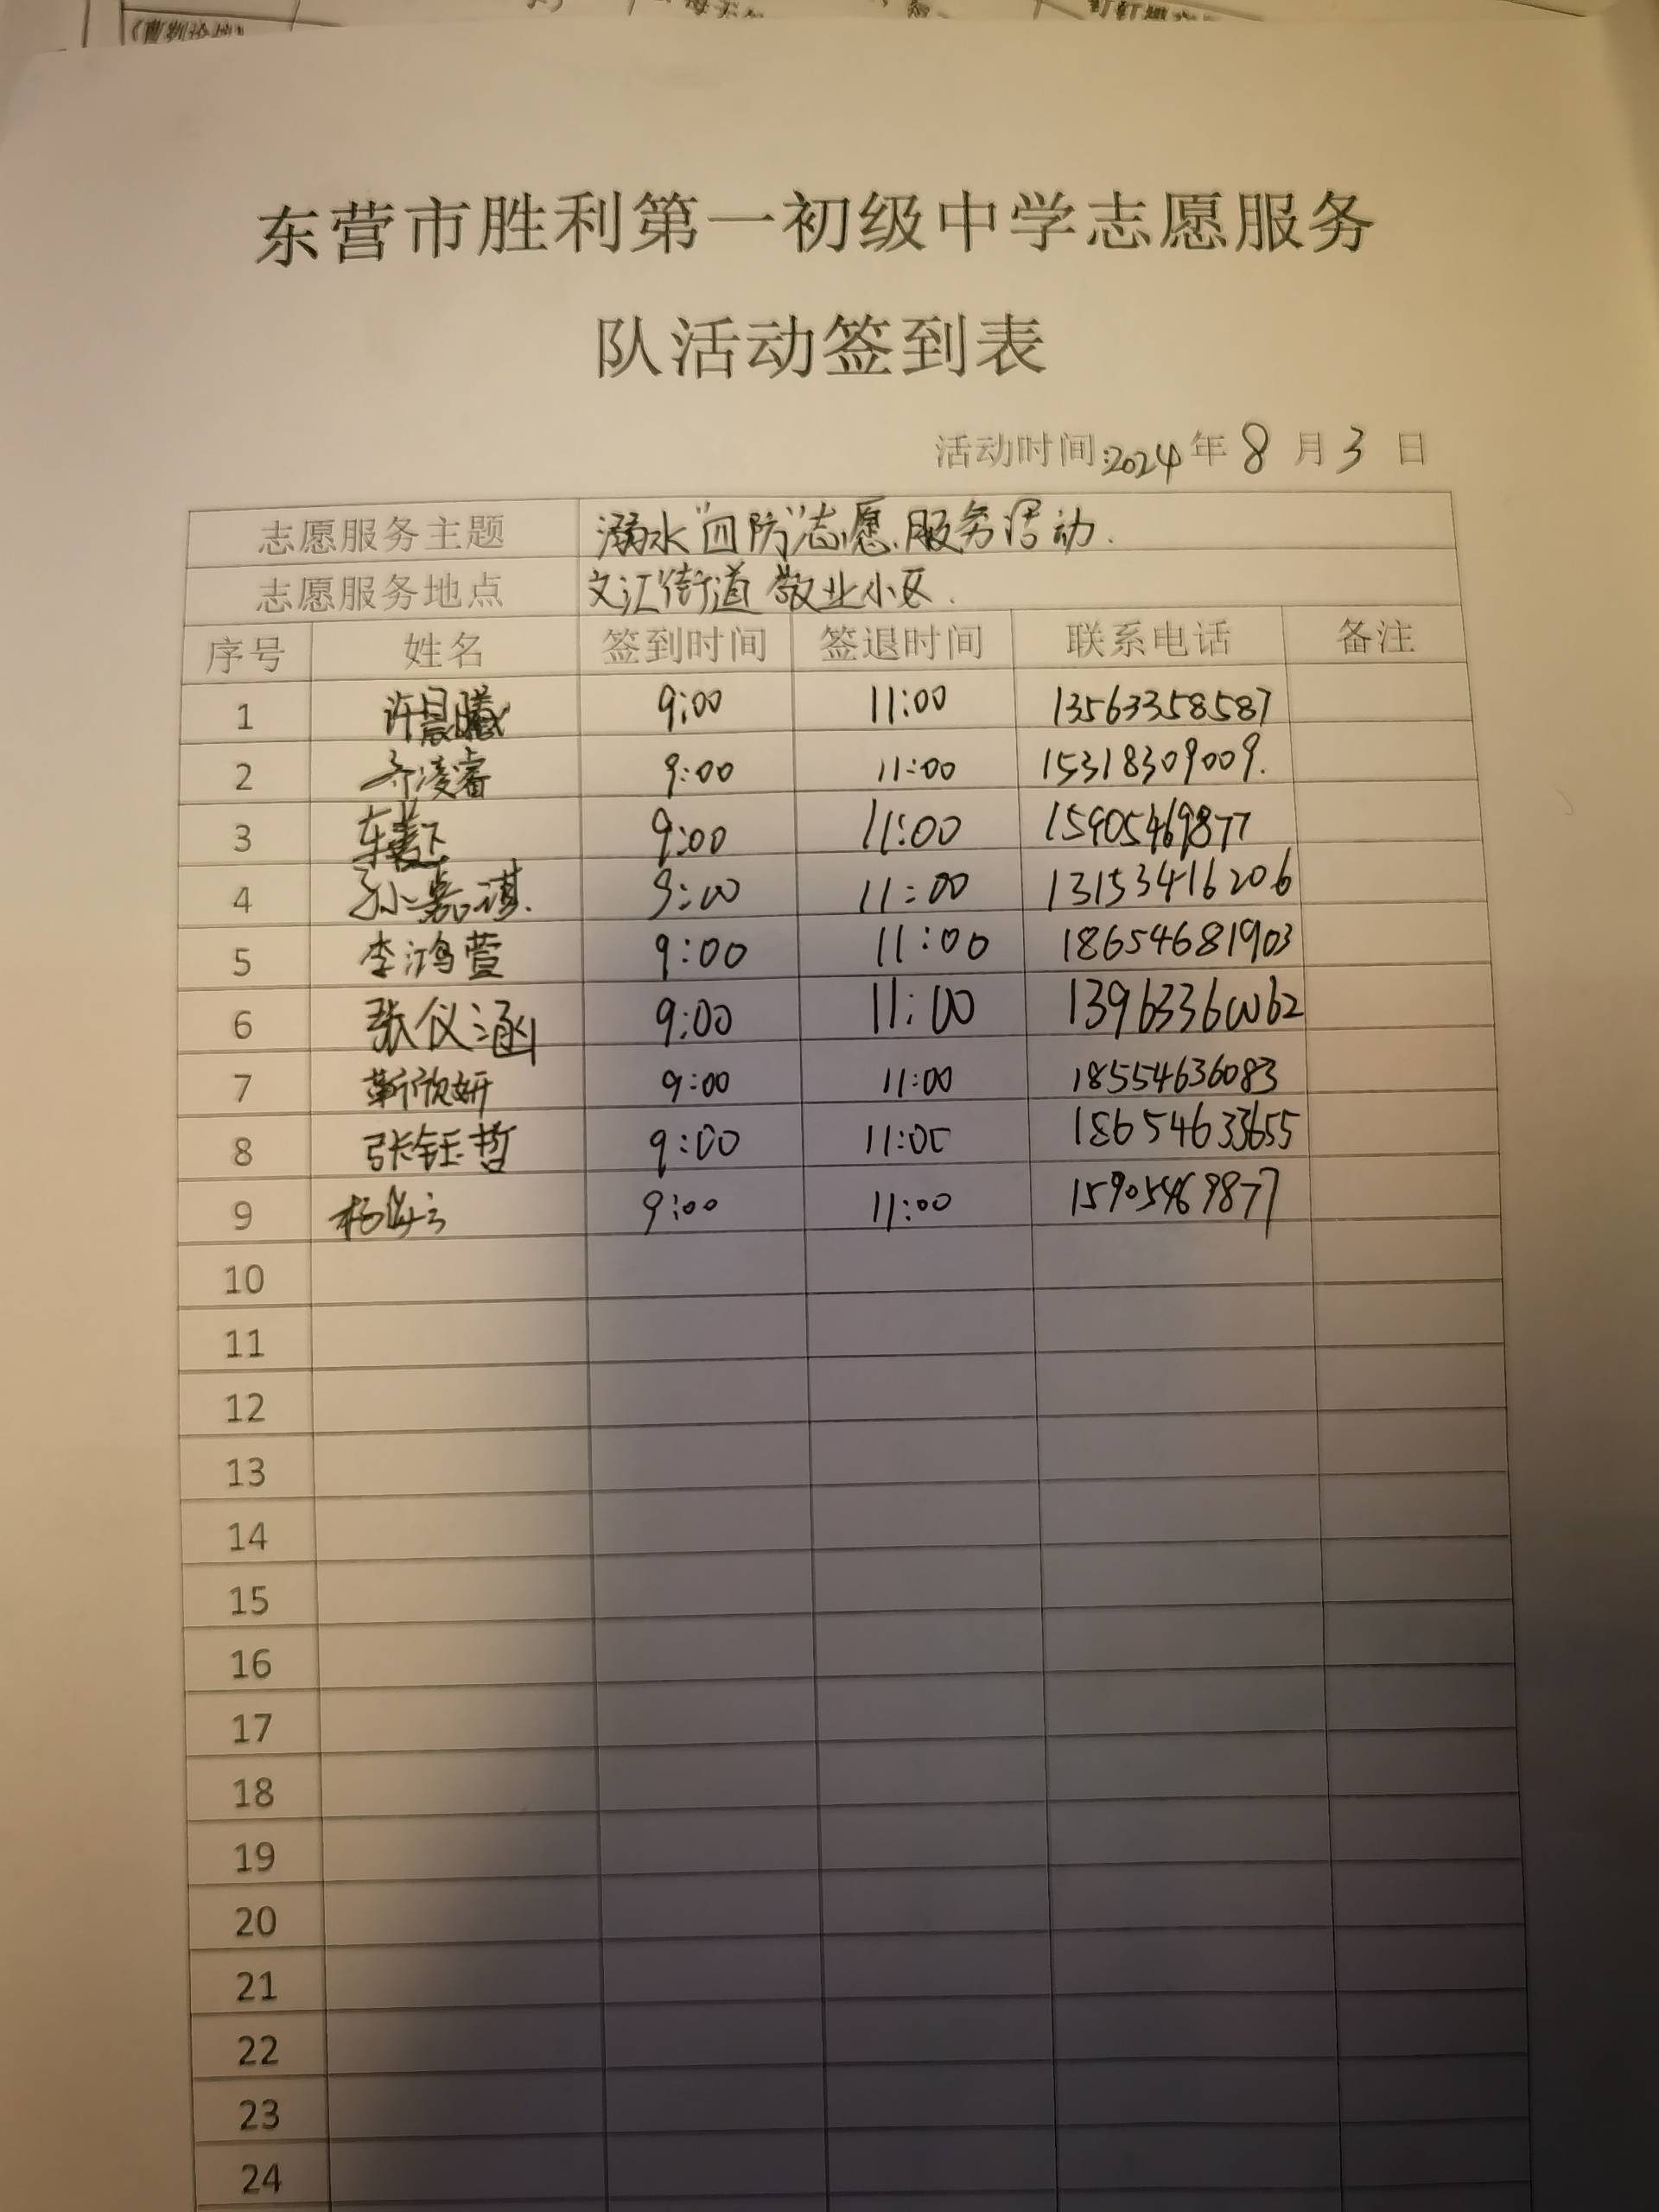 东营市胜利第一初级中学志愿服务
队活动签到表
活动时间:2024年8月3日
志愿服务主题 溺水“四防”志愿服务活动.
志愿服务地点 文汇街道敬业小区.
序号 姓名 签到时间 签退时间 联系电话 备注
1 许晨曦 9:00 11:00 13563358587
2 齐凌睿 9:00 11:00 15318309009.
3 9:00 11:00 15905469877
4 孙嘉祺. 9:00 11:00 13153416206
5 李鸿萱 9:00 11:00 18654681903
6 张仪涵 9:00 11:00 13963360062
7 靳欣妍 9:00 11:00 18554636083
8 张钰哲 9:00 11:00 18654633655
9 9:00 11:00 15905469877
10
11
12
13
14
15
16
17
18
19
20
21
22
23
24